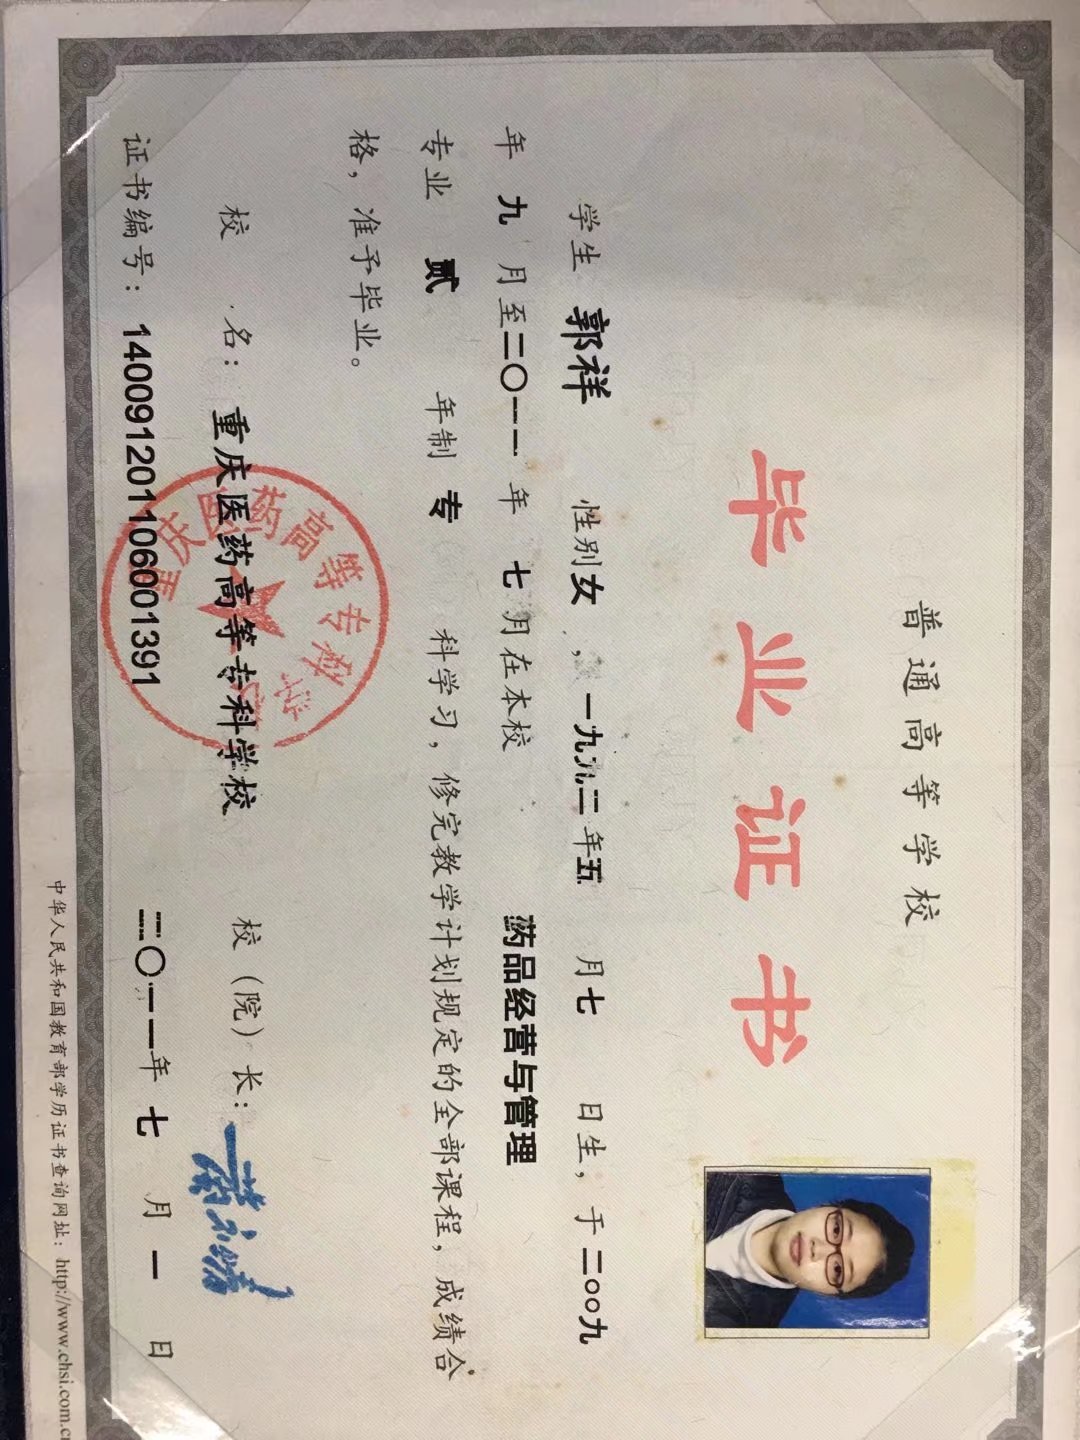 普通高等学校
毕业证书
学生 郭祥 性别女，一九九二年五月七日生，于二〇〇九
年九月至二〇一一年七月在本校 药品经营与管理
专业 贰 年制 专 科学习，修完教学计划规定的全部课程，成绩合
格，准予毕业。
校 名：重庆医药高等专科学校 校（院）长：
证书编号：140091201106001391 二〇一一年七月一日
重庆医药高等专科学校
中华人民共和国教育部学历证书查询网址：http://www.chsi.com.cn